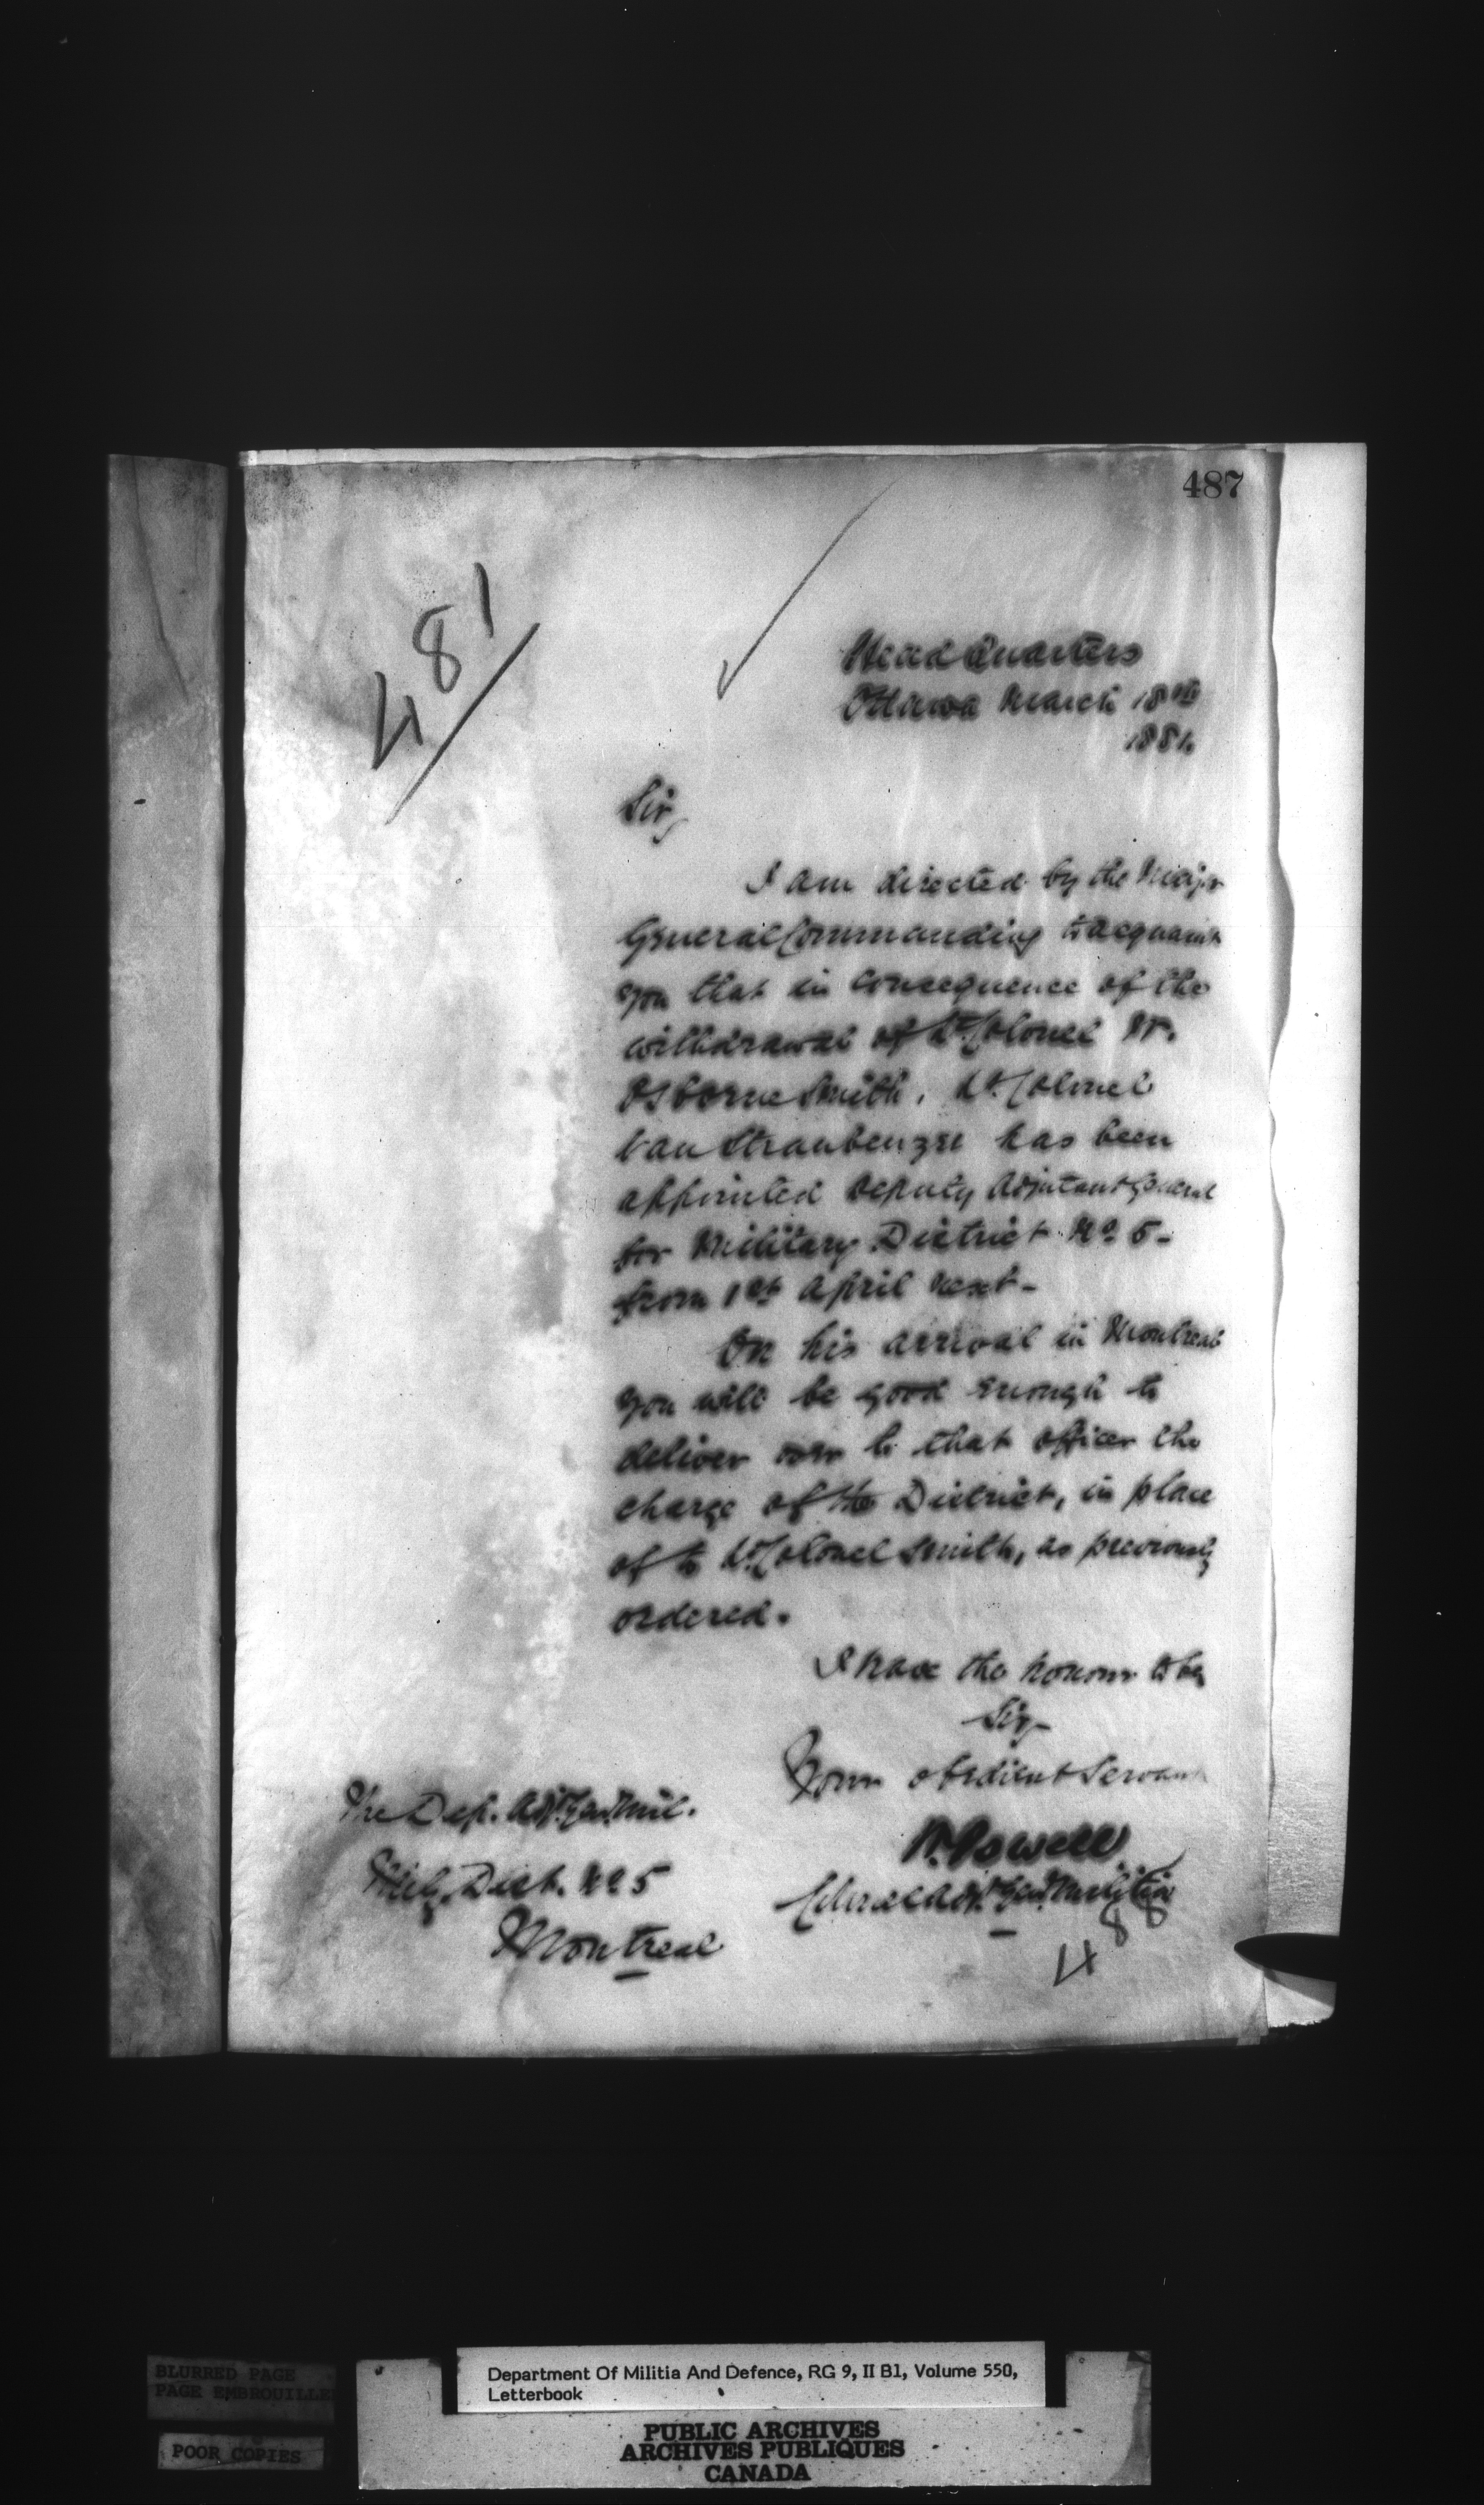 487
481
Head Quarters
Ottawa March 18th
1881.
Sir,
I am directed by the Major
General Commanding to acquaint
you that in consequence of the
withdrawal of Lt. Colonel W.
Osborne Smith, Lt. Colonel
Van Straubenzee has been
appointed Deputy Adjutant General
for Military District No. 5-
from 1st April next-
On his arrival in Montreal
you will be good enough to
deliver over to that officer the
charge of the District, in place
of to Lt. Colonel Smith, as previously
ordered.
I have the honour to be,
Sir,
Your obedient Servant
W. Powell
Colonel Adjt. Genl. Militia
The Dep. Adjt. Genl. Mil.
Mily. Dist. No 5
Montreal
488
BLURRED PAGE
PAGE EMBROUILLE
POOR COPIES
Department Of Militia And Defence, RG 9, II B1, Volume 550,
Letterbook
PUBLIC ARCHIVES
ARCHIVES PUBLIQUES
CANADA